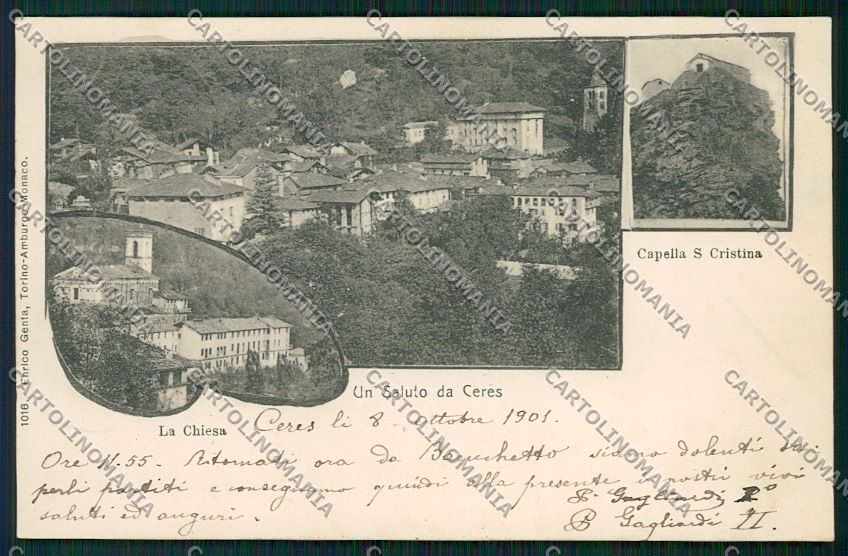 Capella S Cristina
1016 Enrico Genta, Torino-Amburgo-Monaco.
Un Saluto da Ceres
La Chiesa
Ceres li 8 ottobre 1901.
Ore 11.55. Ritornati ora da siamo dolenti
partiti e consegniamo quindi alla presente i nostri vivi
saluti ed auguri.
Gagliardi I°
Gagliardi II.
CARTOLINOMANIA